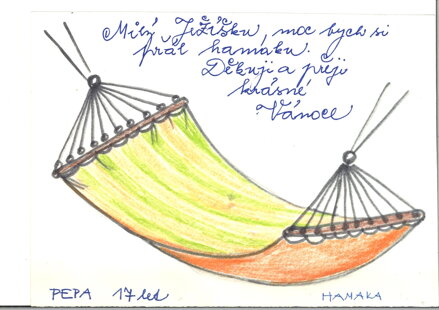 Milý Ježíšku, moc bych si
přál hamaku.
Děkuji a přeji
krásné
Vánoce
PEPA 17 let
HAMAKA